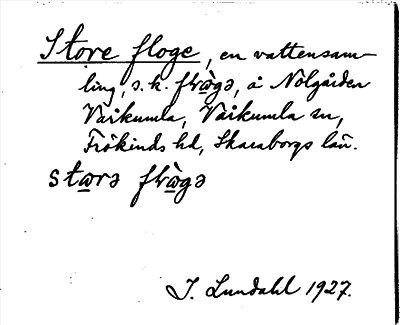 Store floge, en vattensam-
ling, s.k. flὼ̲gə, å Nolgården
Vårkumla, Vårkumla sn,
Frökinds hd, Skaraborgs län.
stω̲rə flὼ̲gə
I. Lundahl 1927.